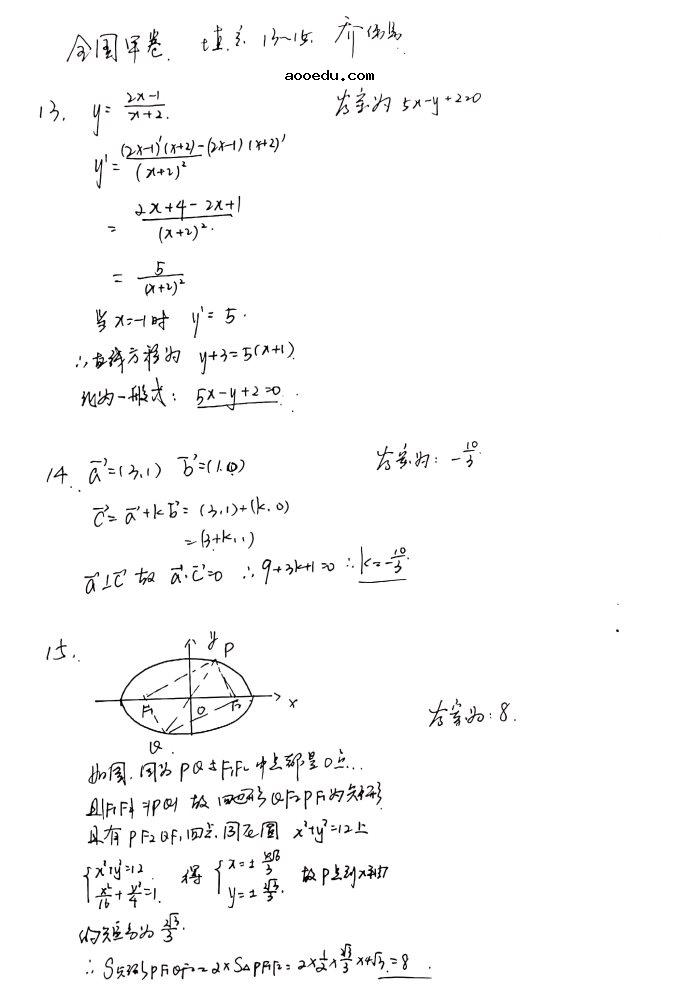 全国甲卷 填空 13~15
aooedu.com
13. y = \frac{2x-1}{x+2} 答案为 5x-y+2=0
y' = \frac{(2x-1)'(x+2)-(2x-1)(x+2)'}{(x+2)^2}
= \frac{2x+4-2x+1}{(x+2)^2}
= \frac{5}{(x+2)^2}
当 x=-1时 y'=5.
∴直线方程为 y+3=5(x+1)
化为一般式: 5x-y+2=0.
14. \vec{a}=(3,1) \vec{b}=(1,0) 答案为: -\frac{10}{3}
\vec{c}=\vec{a}+k\vec{b}=(3,1)+(k,0)
=(3+k,1)
\vec{a}⊥\vec{c} 故 \vec{a}·\vec{c}=0 ∴9+3k+1=0 ∴k=-\frac{10}{3}
15.
y P
F₁ O F₂ x
Q
答案为: 8.
如图,因为 PQ与F₁F₂中点都是O点...
且|F₁F₂|=|PQ| 故 四边形QF₂PF₁为矩形
且有 PF₂QF₁四点,同在圆 x²+y²=12上
{ x²+y²=12 \frac{x²}{16}+\frac{y²}{4}=1. 得 { x=± y=±\frac{2\sqrt{3}}{3}. 故P点到x轴
的距离为\frac{2\sqrt{3}}{3}.
∴S矩形PF₁QF₂=2×S△PF₁F₂=2×\frac{1}{2}×\frac{2\sqrt{3}}{3}×4\sqrt{3}=8.